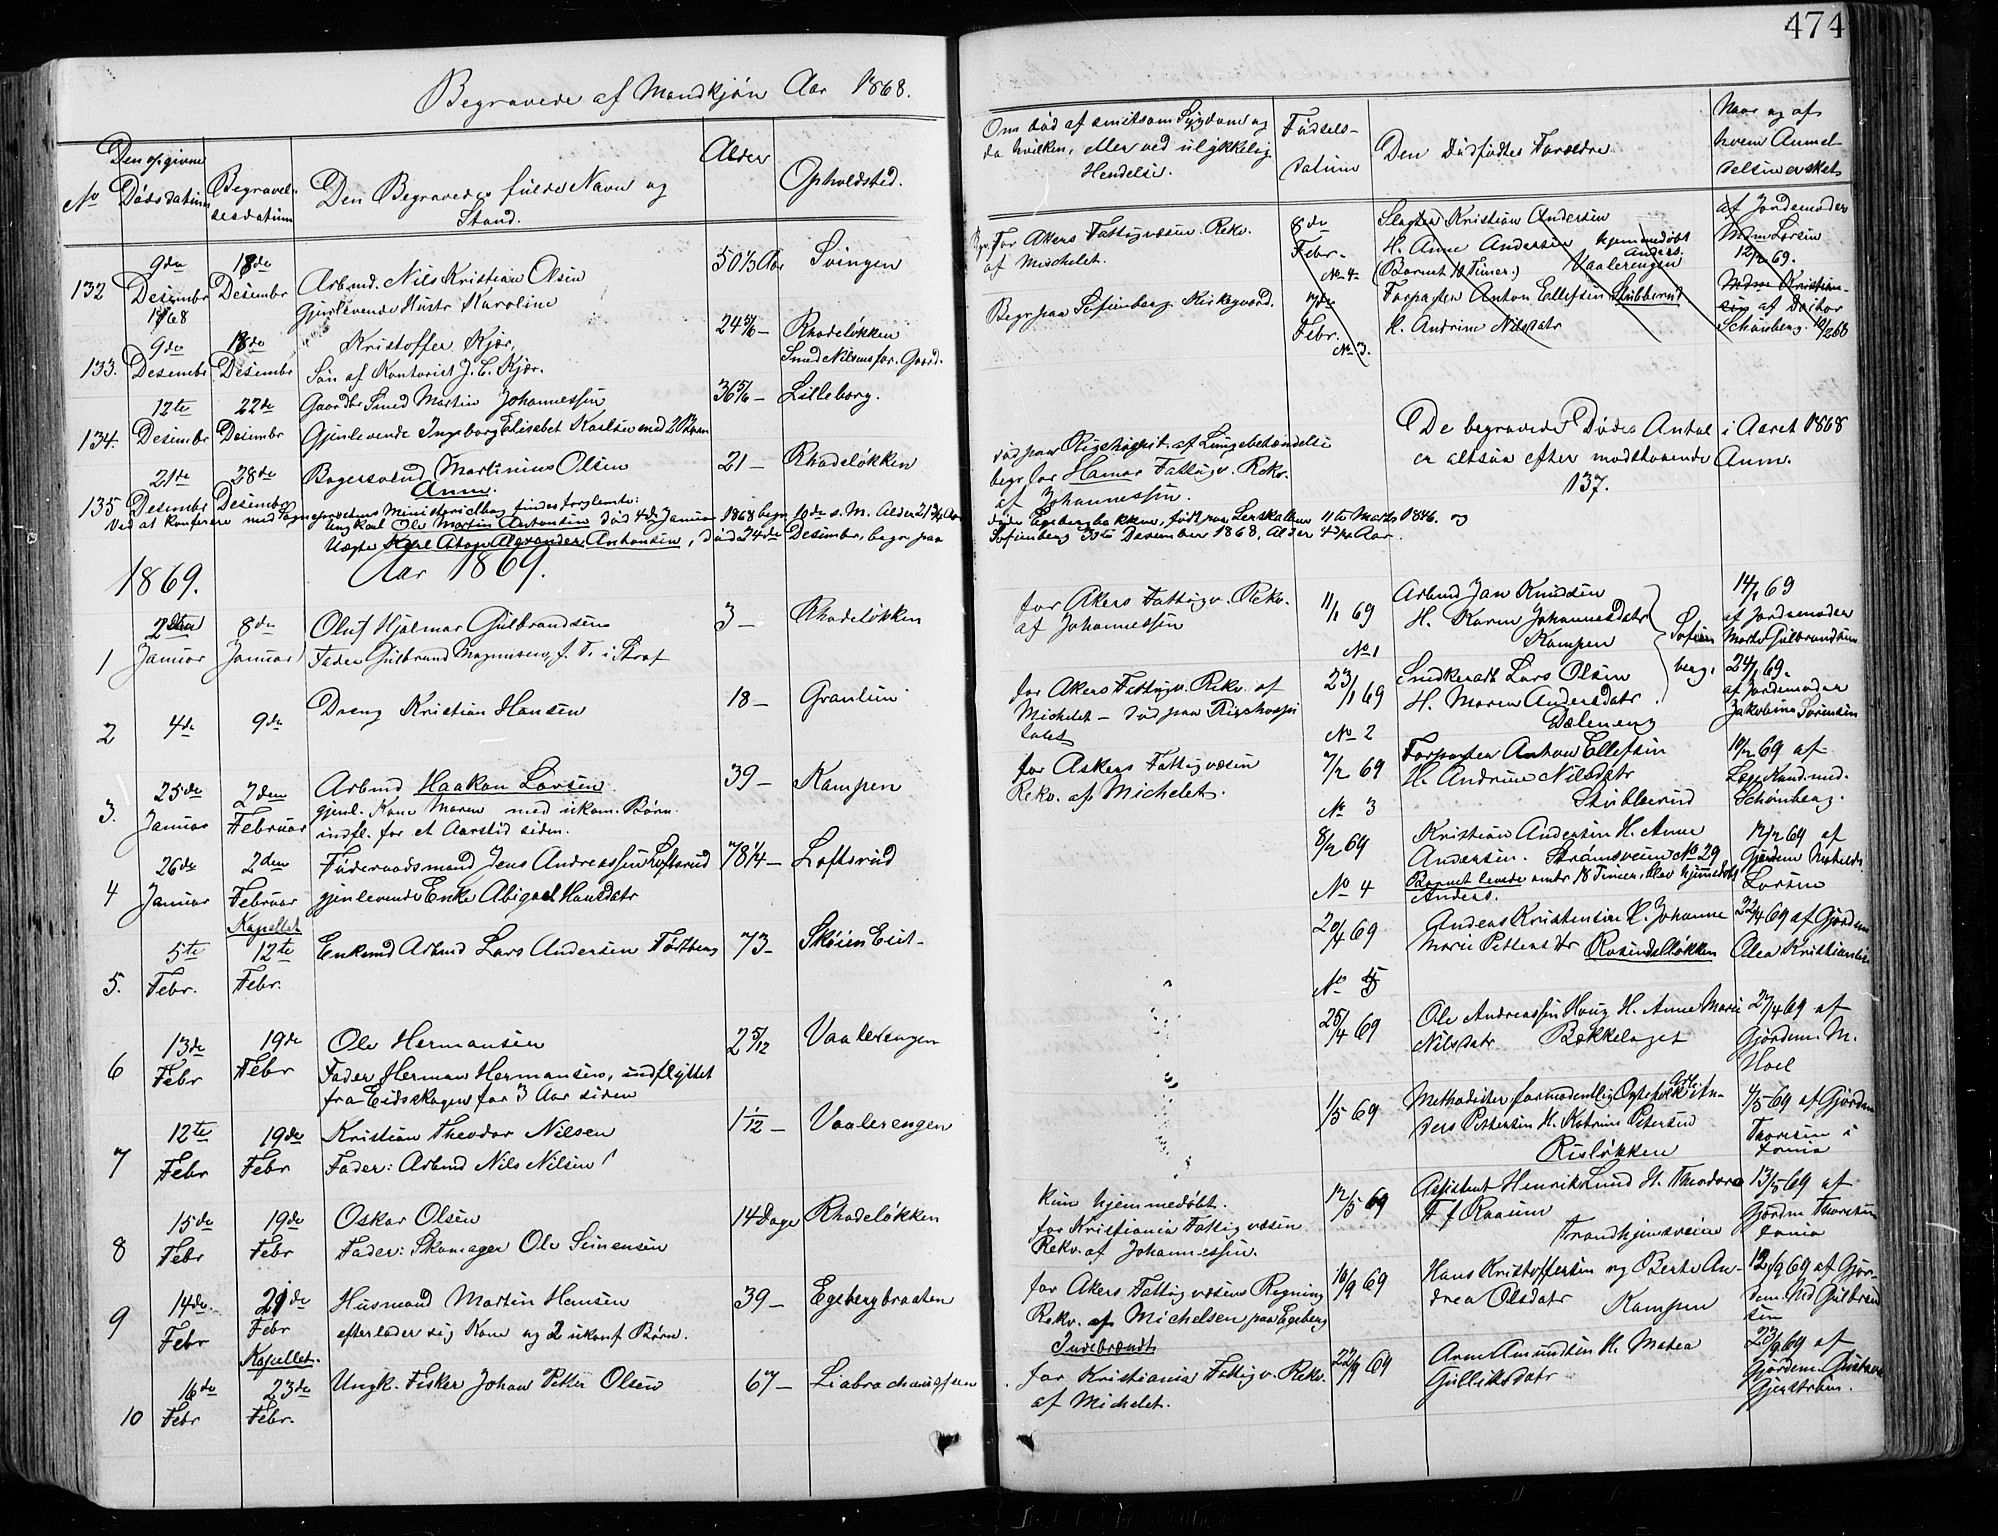 474
Begravede af Mandkjøn Aar 1868.
No
Den opgivne Dødsdatum
Begravelsesdatum
Den Begravedes fulde Navn og Stand.
Alder
Opholdsted.
132 9de Desember 1868 18de Desember Arbmd. Nils Kristian Olsen 50 1/3 Aar Svingen
Gjenlevende Hustr Karoline
133. 9de Desembr 18de Desembr Kristoffer Kjær, 24 5/6 — Rhodeløkken
Søn af Kontorist J. C. Kjær. Smed Nilsens for. Gaard.
134. 12te Desembr 22de Desembr Gaardbr Smed Martin Johannessen 36 5/6 — Lilleborg.
Gjenlevende Ingeborg Elisabet Karlsen med 2 Børn
135 21de Desembr 28de Desembr Bagersvend Martinius Olsen 21 — Rhodeløkken
Anm.
Ved at konferere med Sogneprestens Ministerialbog findes forglemte:
Ungkarl Ole Martin Antonsen død 4de Januar 1868 begr. 10de s. M. Alder 21
Uægte Karl Aton Alexander Antonsen, død 24de Desember, begr. paa
1869. Aar 1869.
1 2den Januar 8de Januar Oluf Hjalmar Gulbrandsen 3 — Rhodeløkken
Fader Gulbrand Magnussen, f. T. i Straf
2 4de 9de Dreng Kristian Hansen 18 — Granlund
3. 25de Januar 2den Februar Arbmd Haakon Larsen 39 — Kampen
gjenl. Kone Maren med ukonf. Børn.
indfl. for et Aarstid siden.
4 26de Januar 2den Februar Føderaadsmand Jens Andreassen Loftsrud 78 1/4 — Loftsrud
gjenlevende Enke Abigael Hansdatr
Kapellet
5. 5te Febr. 12te Febr. Enkemd Arbmd Lars Andersen Tortberg 73 — Skøien Eiet
6 13de Febr 19de Febr Ole Hermansen 2 5/12 Vaalerengen
Fader Herman Hermansen, indflyttet
fra Eidskogen for 3 Aar siden
7 12te Febr 19de Febr Kristian Theodor Nilsen 1 1/12 — Vaalerengen
Fader: Arbmd Nils Nilsen
8 15de Febr 19de Febr Oskar Olsen 14 Dage Rhodeløkken
Fader: Skomager Ole Simensen
9 14de Febr 21de Febr Husmand Martin Hansen 39 — Egebergbraaten
efterlader sig Kone og 2 ukonf Børn.
Kapellet.
10 16de Febr 23de Febr. Ungk. Fisker Johan Petter Olsen 67 — Liabrochausseen
Om død af smitsom Sygdom og
da hvilken, eller ved ulykkelig
Hendelse.
Fødsels-
datum
Den Dødfødtes Forældre
Naar og af
hvem Anmel-
delsen er sket
For Akers Fattigvæsen. Rekv.
af Michelet.
8de Febr. No 4. Slagter Kristian Andersen
H. Anne Andersen hjemmedøbt Anders.
(Barnet 18 Timer.) Vaalerengen
af Jordemoder
Mdm Larsen
12/2 69.
Begr paa Sofienberg Kirkegaard.
7de Febr. No 3. Forpagter Anton Ellefsen Stubberud
H. Andrine Nilsdatr
Mdm Kristian-
sen af Doktor
Schønberg. 10/2 68
død paa Rigshospit. af Lungebetændelse
begr for Hamar Fattigv. Rekv.
af Johannessen.
De begravede Dødes Antal i Aaret 1868
er altsaa efter modstaaende Anm.
137.
døde Egebergbakken, født paa Lerskallen 11te Marts 1846. og
Sofienberg 30te Desember 1868, Alder 4 Aar.
for Akers Fattigv. Rekv.
af Johannessen
11/1 69 No 1 Arbmd Jan Knudsen
H. Karen Johannesdatr
Kampen
Sofien
berg.
14/1 69
af Jordemoder
Marte Gulbrandsen
for Akers Fattigv. Rekv. af
Michelet — død paa Rigshospi
talet
23/1 69 No 2 Snedkersv Lars Olsen
H. Maren Andersdatr
Dæleneng
24/1 69.
af Jordemoder
Jakobine Sørensen
for Askers Fattigvæsen
Rekv. af Michelet.
7/2 69 No 3 Forpagter Anton Ellefsen
H. Andrine Nilsdatr
Stubberud
10/2 69 af
Læge Kand. med.
Schønberg.
8/2 69 No 4 Kristian Andersen H. Anne
Andersen. Strømsveien No 29
Barnet levede omtr 18 Timer, blev hjemdøbt
Anders.
12/2 69 af
Gjordem Mathilde
Larsen
20/4 69 No 5 Andeas Kristensen H. Johanne
Marie Pettersdtr Rosendelløkken
22/4 69 af Gjordem
Olea Kristiansen
25/4 69 Ole Andreassen Haug H. Anne Marie
Nilsdatr Bækkelaget
27/4 69 af
Gjordem. M.
Hoel
1/5 69 Methodister formodentlig An-
ders Pettersen H. Katrine Petersen
Risløkken
4/5 69 af Gjordm
Thoresen i
Kun hjemmedøbt.
for Kristiania Fattigvæsen
Rekv. af Johannessen.
12/5 69 Assistent Henrik Lund H. Theodora
F. f Raaum
Trondhjemsveien
13/5 69 af
Gjordm Thoresen
for Akers Fattigvæsens Regning
Rekv. af Michelsen paa Egeberg
Indebrændt
10/9 69 Hans Kristoffersen og Berte An-
drea Olsdatr Kampen
12/9 69 af Gjor-
dem. Gulbrand
sen
for Kristiania Fattigv. Rekv.
af Michelet.
22/9 69 Arne Amundsen H. Matea
Gulliksdatr
23/9 69 af
Gjordem. Gustava
Gjerstrøm.